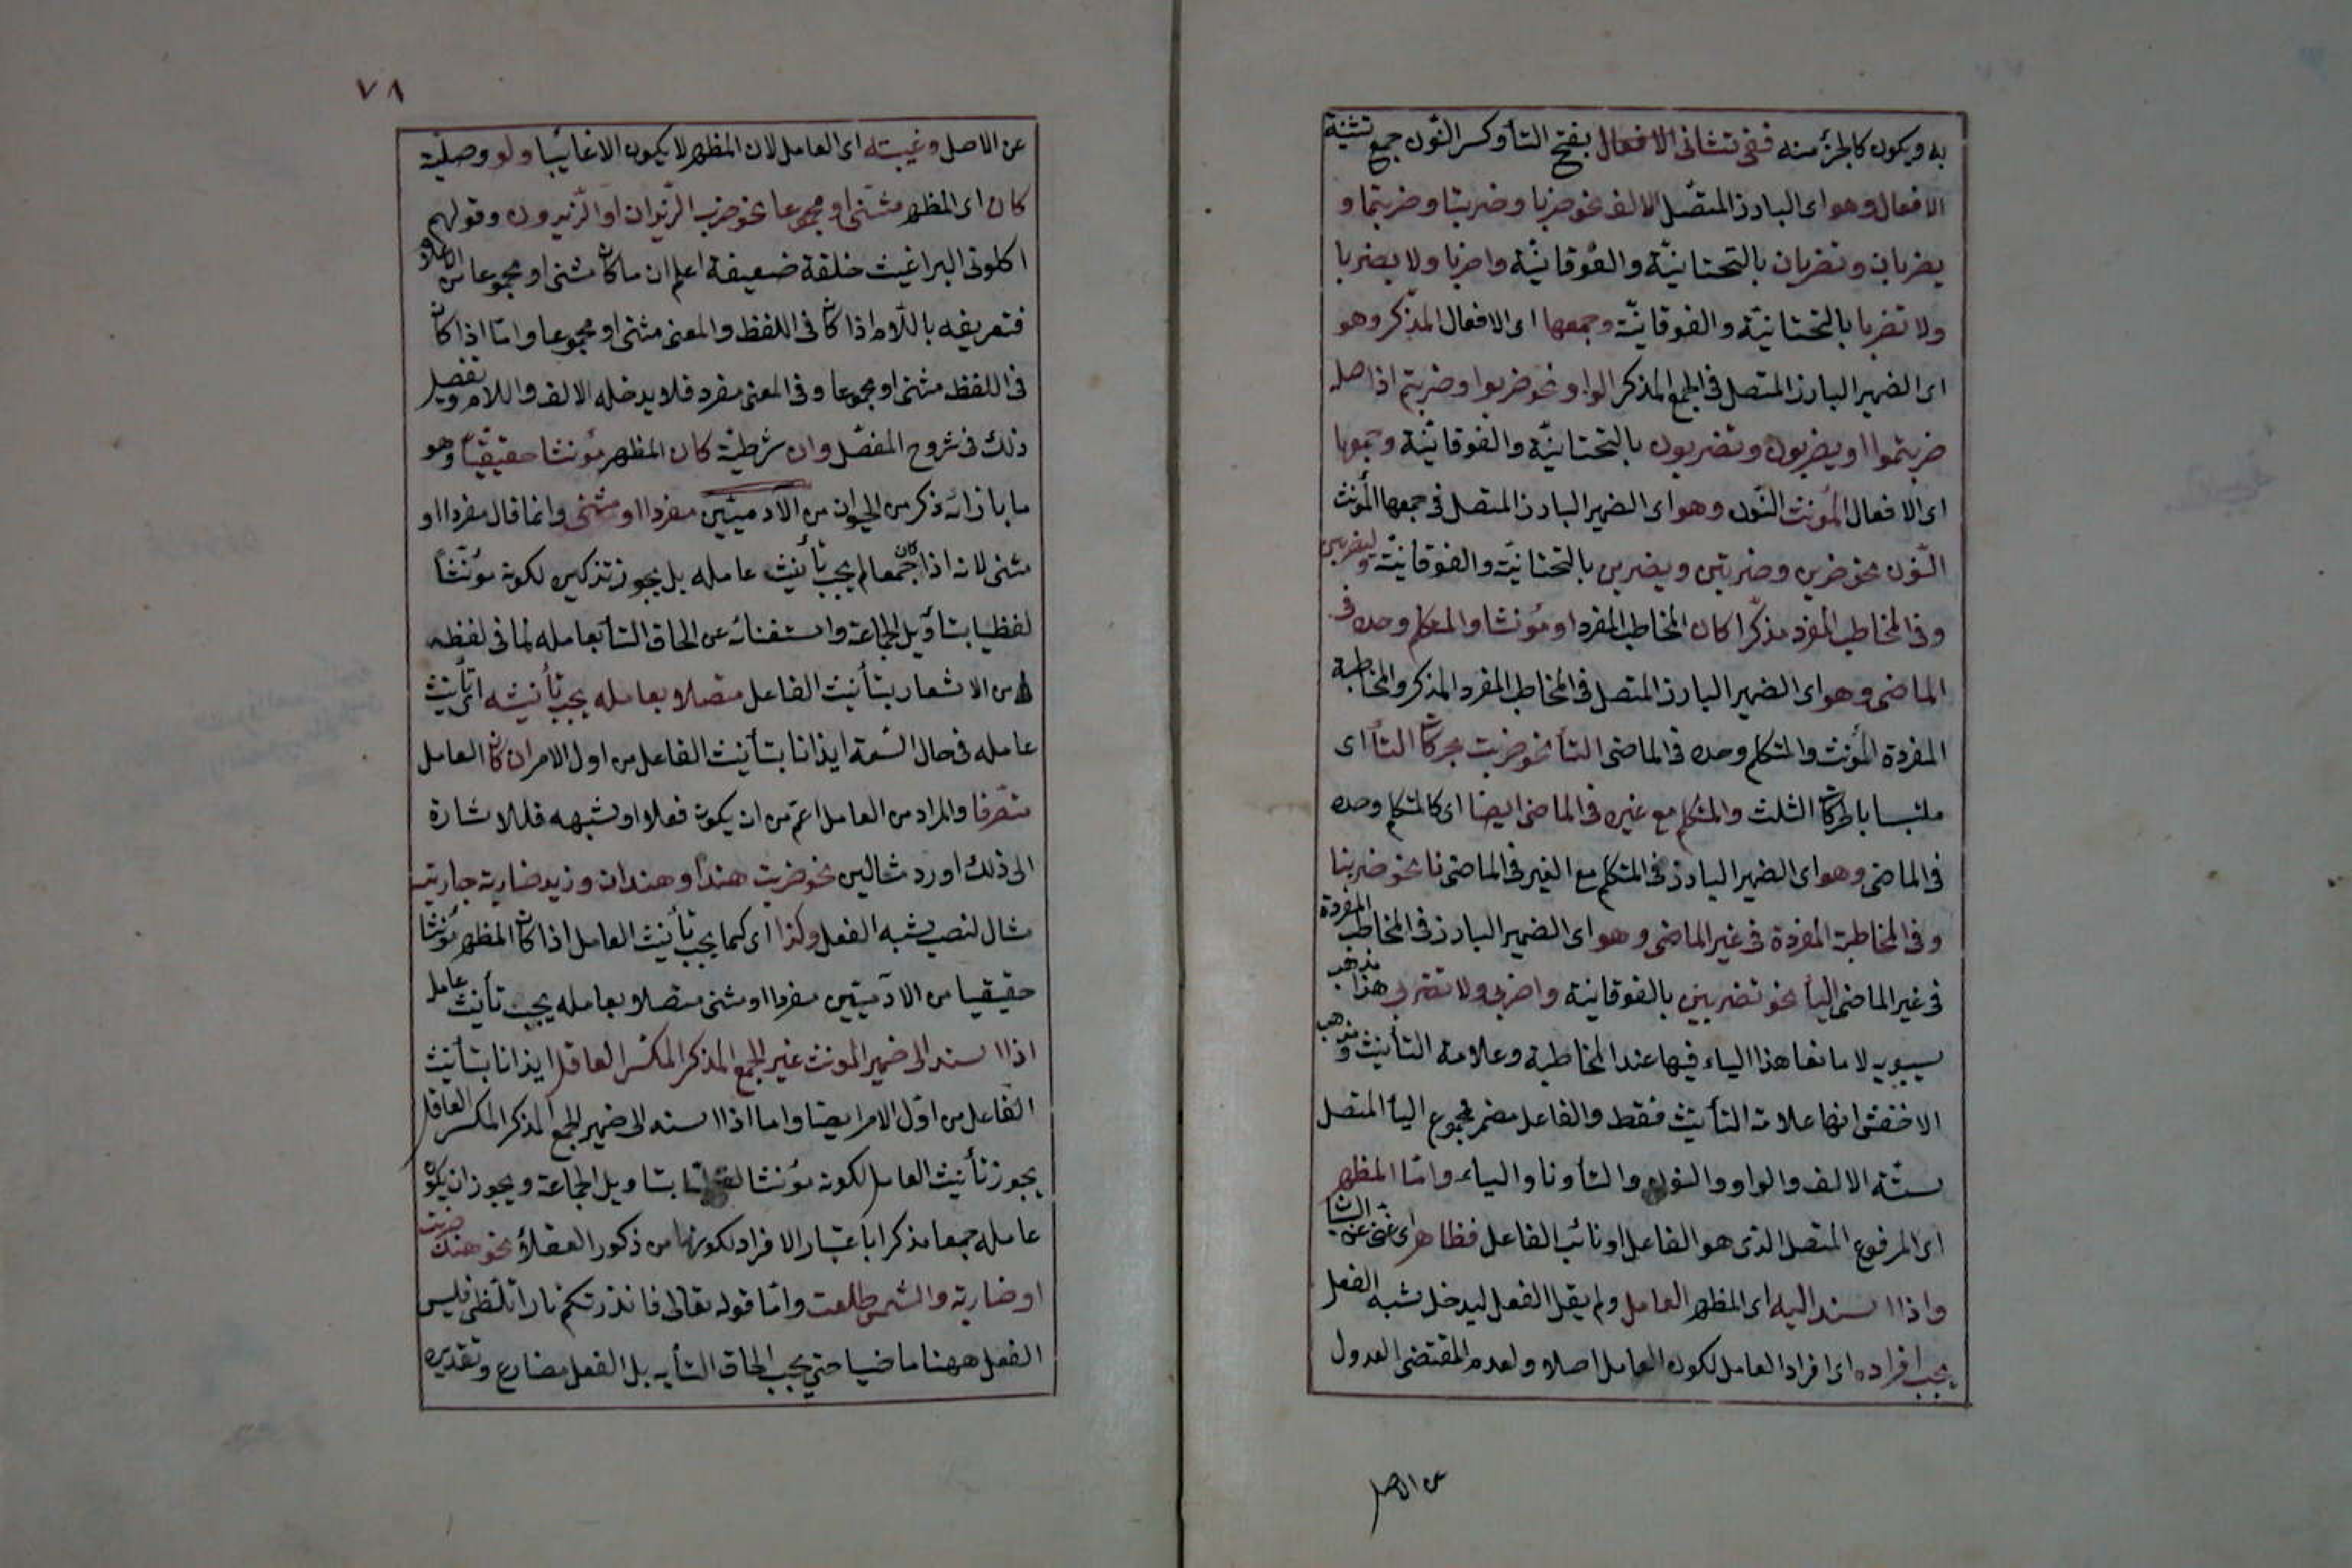 به ويكون كالجزء منه ففى تثانى الافعال بفتح التأ وكسر النّون جمع تثنية
الافعال وهو اى البارز المتصل الالف نحو ضربا وضربتا وضربتما و
يضربان وتضربان بالتحتانيّة والفوقانيّة واضربا ولا يضربا
ولا تضربا بالتحتانيّة والفوقانيّة وجمعها اى الافعال المذكر وهو
اى الضمير البارز المتصل فى الجمع المذكر الواو نحو ضربوا وضربتم اذ اصله
ضربتموا ويضربون وتضربون بالتحتانيّة والفوقانيّة وجمعها
اى الافعال المؤنث النّون وهو اى الضمير البارز المتصل فى جمعها المؤنث
النّون نحو ضربن وضربتن ويضربن بالتحتانيّة والفوقانيّة وليضربن
وفى المخاطب المفرد مذكّرا كان المخاطب المفرد او مؤنثا والمتكلم وحده فى
الماضى وهو اى الضمير البارز المتصل فى المخاطب المفرد المذكر والمخاطبة
المفردة المؤنث والمتكلم وحده فى الماضى التأ نحو ضربت بحركات التأ اى
ملتبسا بالحركات الثلث والمتكلم مع غيره فى الماضى ايضا اى كالمتكلم وحده
فى الماضى وهو اى الضمير البارز فى المتكلم مع الغير فى الماضى نا نحو ضربنا
وفى المخاطبة المفردة فى غير الماضى وهو اى الضمير البارز فى المخاطب المفردة
فى غير الماضى اليأ نحو تضربين بالفوقانية واضربى ولا تضربى هذا مذهب
سيبويه لا مانعا هذا الياء فيها عند المخاطبة وعلامة التأنيث ومذهب
الاخفش انها علامة التأنيث فقط والفاعل مضمر فمجموع اليأ المتصل
ستّة الالف والواو والنون والتأ ونا والياء وامّا المظهر
اى المرفوع المتصل الذى هو الفاعل او نائب الفاعل فظاهر اى غنى عن البيان
واذا اسند اليه اى المظهر العامل ولم يقل الفعل ليدخل شبه الفعل
يجب افراده اى افراد العامل لكون العامل اصلا ولعدم المقتضى العدول
عن الاصل
٧٨
عن الاصل وغيبته اى العامل لان المظهر لا يكون الا غائيبا ولو وصليّة
كان اى المظهر مثنى او مجموعا نحو ضرب الزيدان او الزيدون وقولهم
اكلونى البراغيث ضعيفة اعلم ان ما كان مثنى او مجموعا من الاعلام
فتعريفه باللّام اذا كان فى اللفظ والمعنى مثنى او مجموعا وامّا اذا كان
فى اللفظ مثنى او مجموعا وفى المعنى مفرد فلا يدخله الالف واللام وتفصيل
ذلك فى شروح المفصّل وان شرطيّة كان المظهر مؤنثا حقيقيّا وهو
ما بازائه ذكر من الحيوان من الآدميّين مفردا او مثنى وانما قال مفردا او
مثنى لانه اذا كان جمعا لم يجب تأنيث عامله بل يجوز تذكيره لكونه مؤنّثا
لفظيا بتأويل الجماعة واستغنائه عن الحاق التأ بعامله لما فى لفظه
من الاشعار بتأنيث الفاعل متصلا بعامله يجب تأنيثه اى تأنيث
عامله فى حال السّعة ايذانا بتأنيث الفاعل من اول الامر ان كان العامل
متصّرفا والمراد من العامل اعمّ من ان يكون فعلا او شبهه فللاشارة
الى ذلك اورد مثالين نحو ضربت هند او هندان وزيد ضاربة جاريته
مثال لنصب شبه الفعل وكذا اى كما يجب تأنيث العامل اذا كان المظهر مؤنثا
حقيقيا من الآدميّين مفردا او مثنى متصلا بعامله يجب تأنيث عامل
اذا اسند الى ضمير المونث غير الجمع المذكر المكسّر العاقل ايذانا بتأنيث
الفاعل من اوّل الامر ايضا واما اذا اسند الى ضمير الجمع المذكر المكسر العاقل
يجوز تأنيث العامل لكونه مؤنثا لفظيا بتاويل الجماعة ويجوز ان يكون
عامله جمعا مذكرا باعتبار الافراد لكونها من ذكور العقلاء نحو هند ضربت
او ضاربة والشمس طلعت وامّا قوله تعالى فانذرتكم نارا تلظّى فليس
الفعل ههنا ماضيا حتى يجب الحاق التأ به بل الفعل مضارع وتقديره